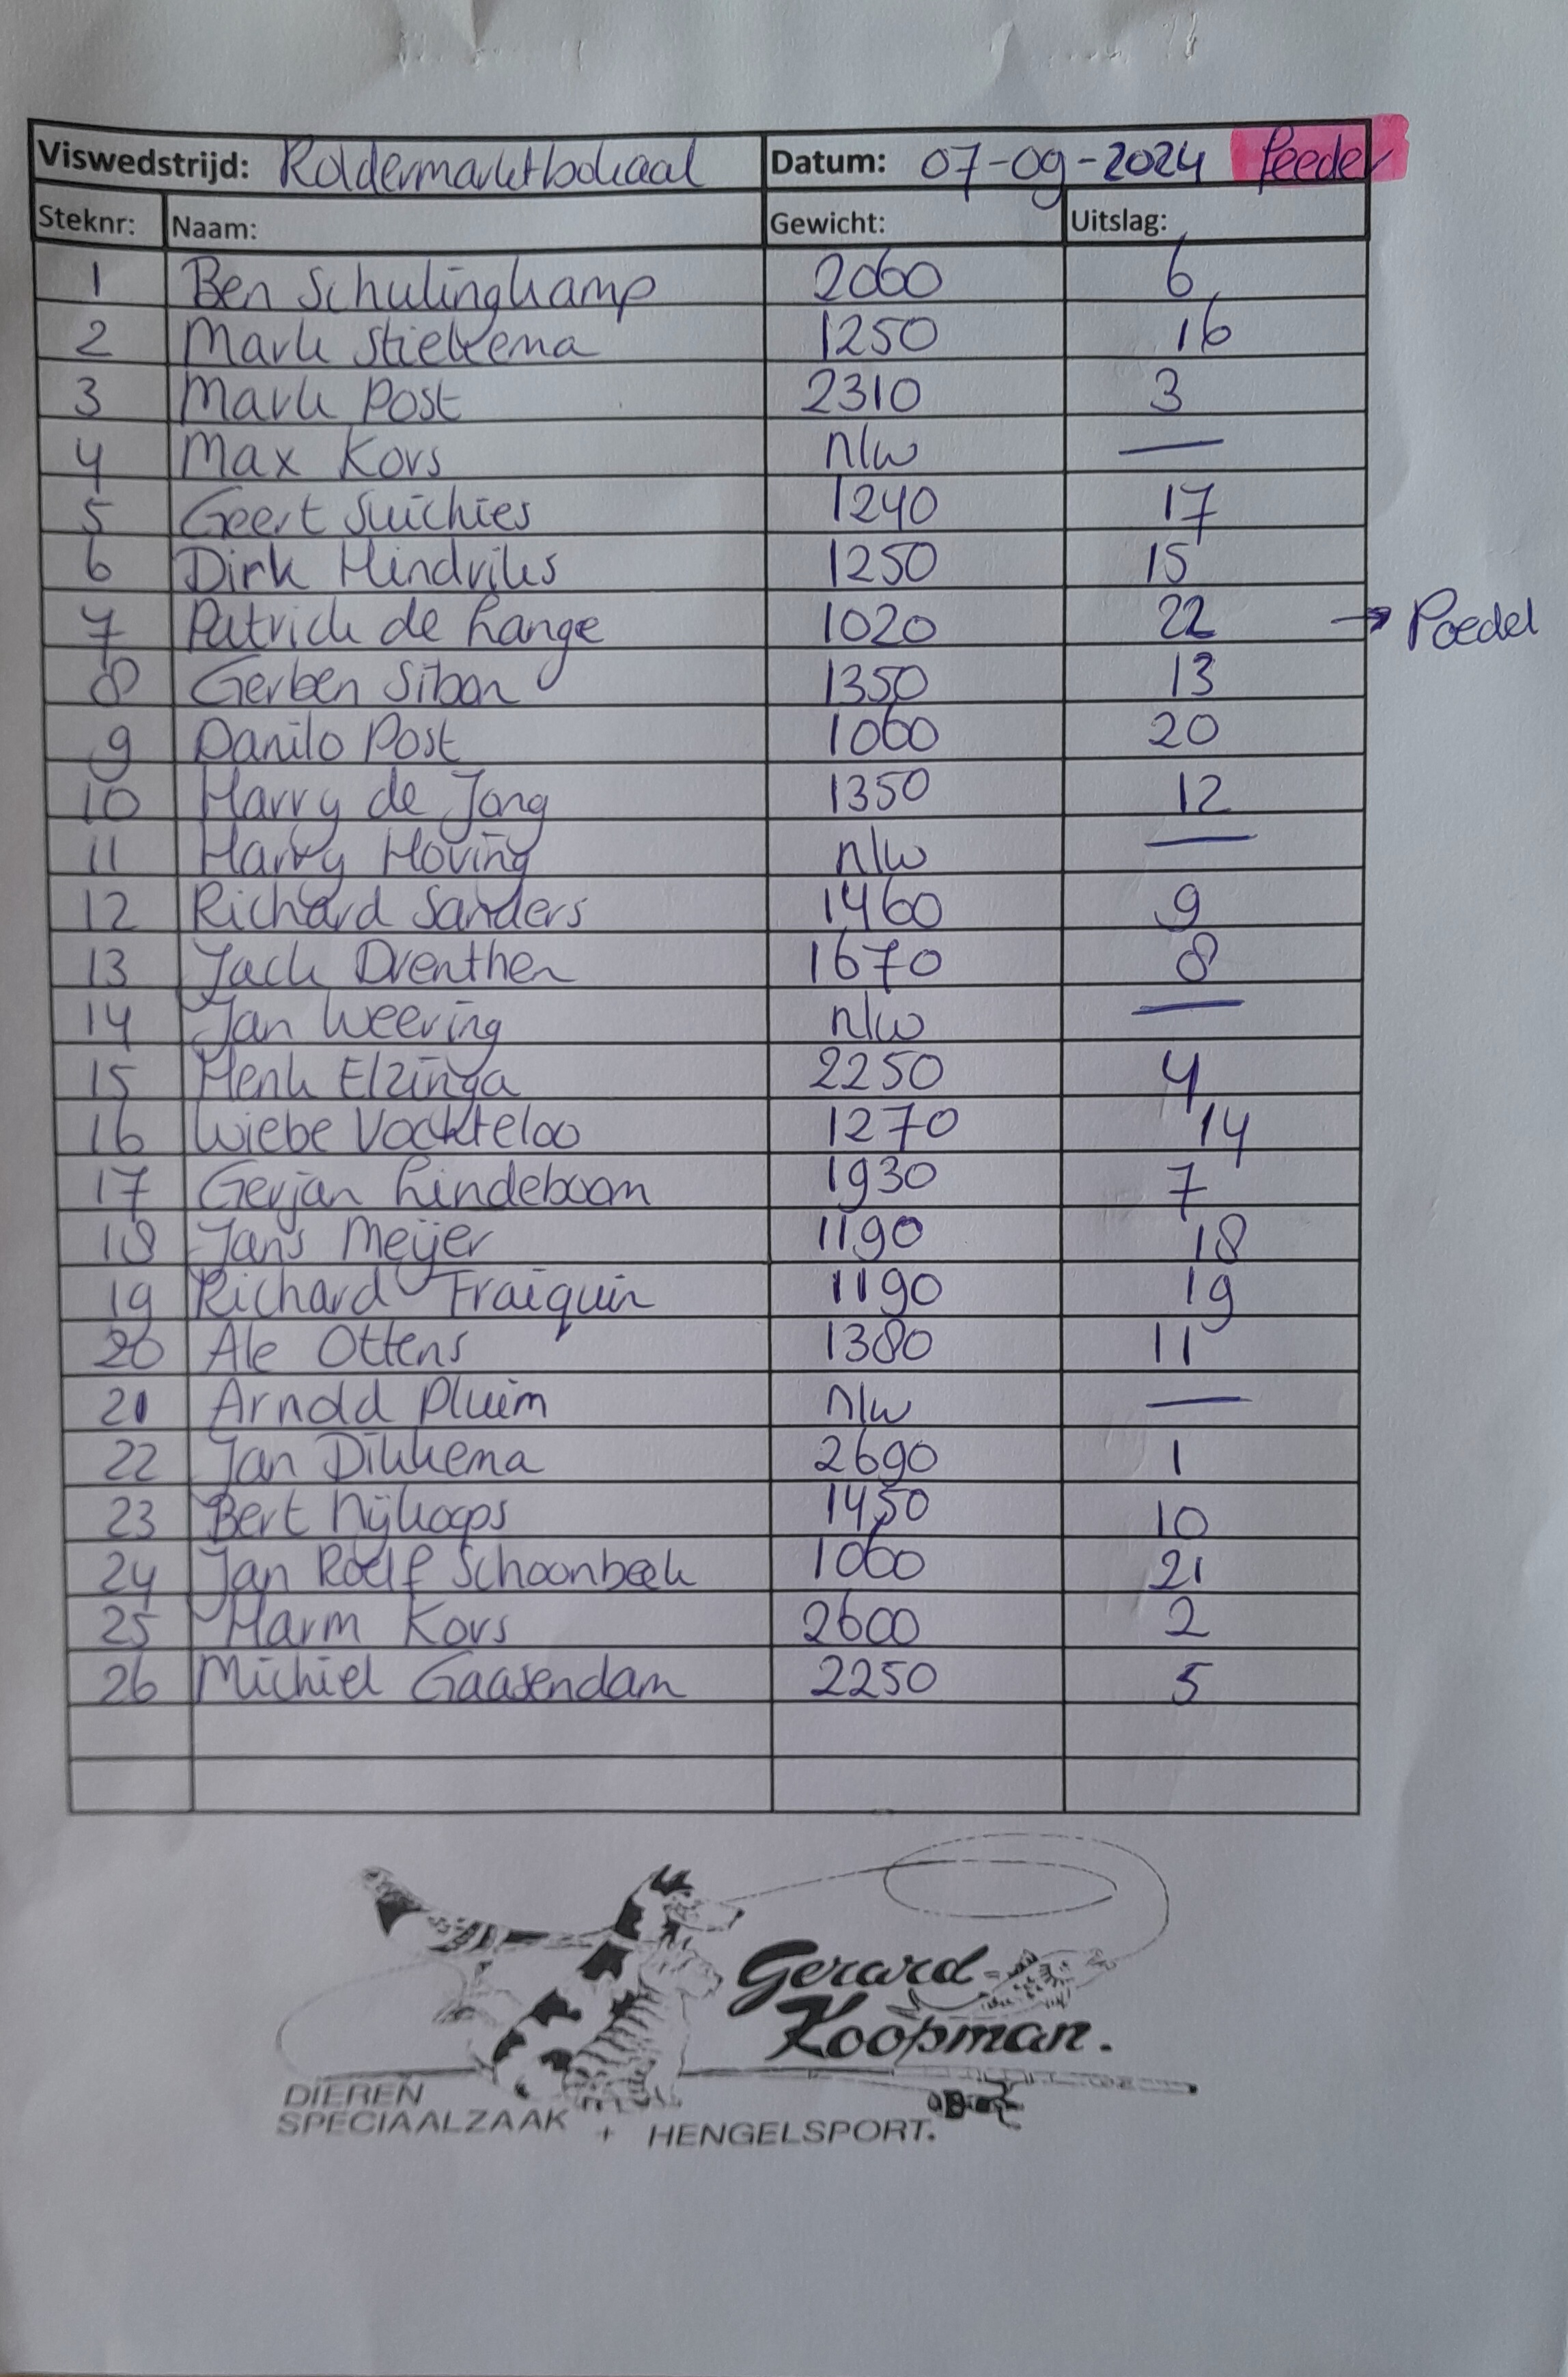 Viswedstrijd: Roldermarktbokaal Datum: 07-09-2024 Feeder
Steknr: Naam: Gewicht: Uitslag:
1 Ben Schulingkamp 2060 6
2 Mark Stiekema 1250 16
3 Mark Post 2310 3
4 Max Kors n/w —
5 Geert Suichies 1240 17
6 Dirk Hindriks 1250 15
7 Patrick de Lange 1020 22 → Poedel
8 Gerben Sibon 1350 13
9 Danilo Post 1060 20
10 Harry de Jong 1350 12
11 Harry Hoving n/w —
12 Richard Sanders 1460 9
13 Jack Drenthen 1670 8
14 Jan Weering n/w —
15 Henk Elzinga 2250 4
16 Wiebe Vockteloo 1270 14
17 Gerjan Lindeboom 1930 7
18 Jans Meijer 1190 18
19 Richard Fraiquin 1190 19
20 Ale Ottens 1380 11
21 Arnold Pluim n/w —
22 Jan Dikkema 2690 1
23 Bert Nijkoops 1450 10
24 Jan Roelf Schoonbeek 1060 21
25 Harm Kors 2600 2
26 Michiel Gaasendam 2250 5
Gerard
Koopman.
DIEREN
SPECIAALZAAK + HENGELSPORT.